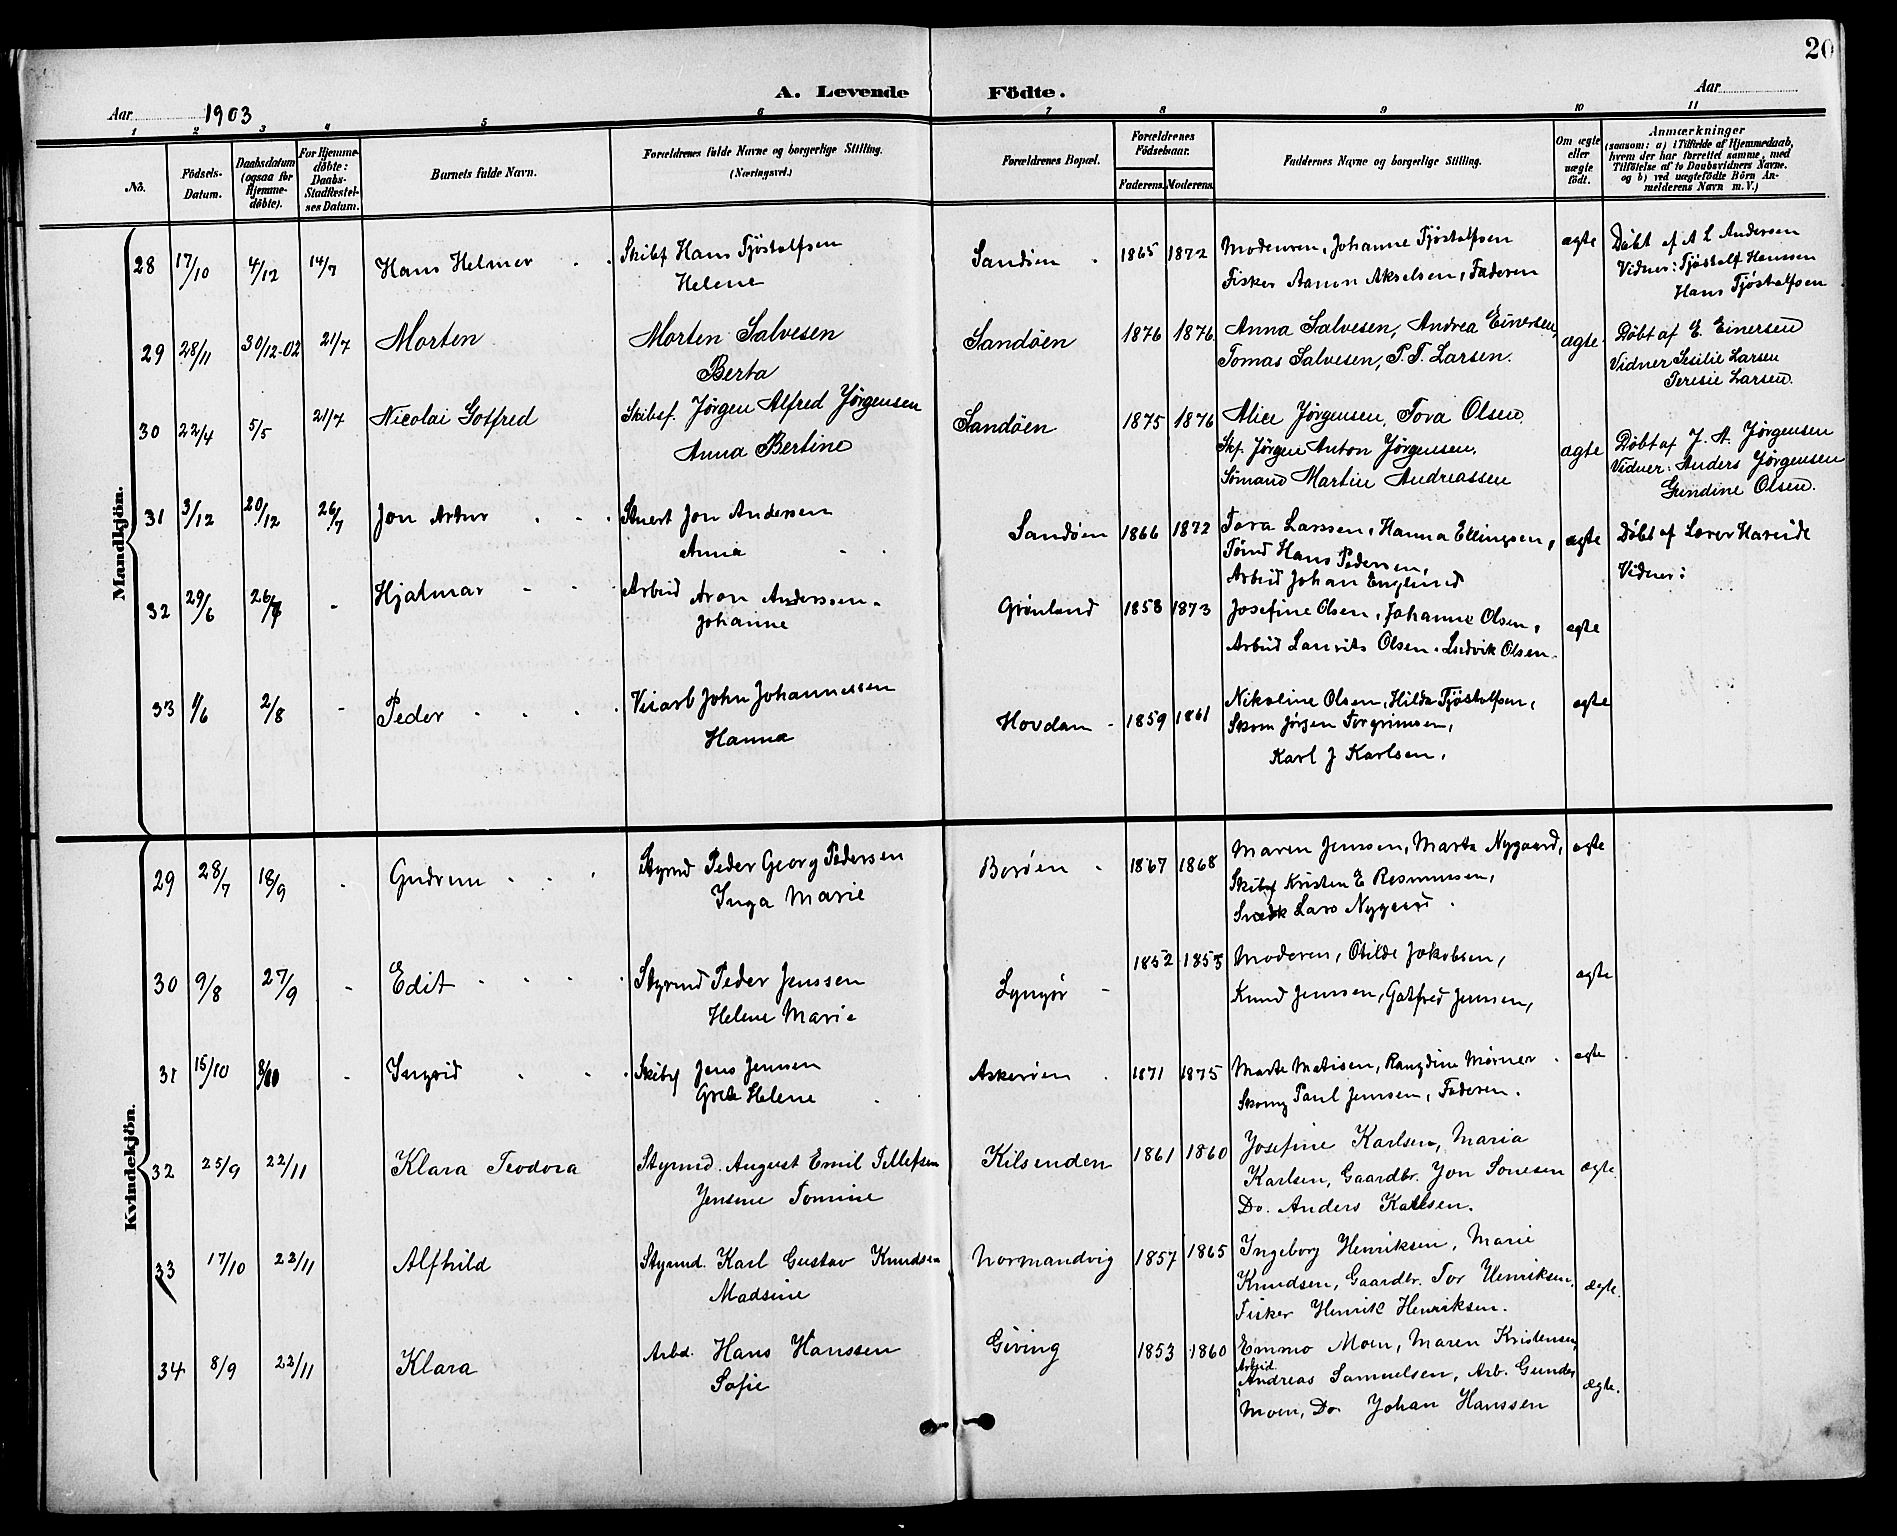 20
A. Levende Födte.
Aar 1903
Aar
1 2 3 4 5 6 7 8 9 10 11
No.
Födsels-Datum.
Daabsdatum (ogsaa for Hjemme-döbte).
For Hjemme-döbte: Daabs-Stadfæstel-ses Datum.
Barnets fulde Navn.
Forældrenes fulde Navne og borgerlige Stilling. (Næringsvei.)
Forældrenes Bopæl.
Forældrenes Födselsaar. Faderens. Moderens.
Faddernes Navne og borgerlige Stilling.
Om ægte eller uægte födt.
Anmærkninger (saasom: a) i Tilfælde af Hjemmedaab, hvem der har forrettet samme, med Tilföielse af to Daabsvidners Navne. og b) ved uægtefödte Börn An-melderens Navn m. V.)
Mandkjön.
28 17/10 4/12 14/7 Hans Helmer Skibsf Hans Tjöstolfsen Sandöen 1865 1872 Moderen, Johanne Tjöstolfsen ægte Döbt af A L Andersen
Helene Fisker Aanon Akselsen, Faderen Vidner: Tjöstolf Hanssen
Hans Tjöstolfsen
29 28/11 30/12-02 21/7 Morten Morten Salvesen Sandöen 1876 1876 Anna Salvesen, Andrea Einersen, ægte Döbt af E. Einersen
Berta Tomas Salvesen, P. T. Larsen. Vidner Sesilie Larsen
Teresie Larsen.
30 22/4 5/5 21/7 Nicolai Gotfred Skibsf. Jörgen Alfred Jörgensen Sandöen 1875 1876 Alice Jörgensen, Tora Olsen. ægte Döbt af J. A. Jörgensen
Anna Bertine Skf. Jörgen Anton Jörgensen. Vidner: Anders Jörgensen
Sömand Martin Andreassen Gundine Olsen.
31 3/12 20/12 26/7 Jon Artur Stuert Jon Andersen Sandöen 1866 1872 Tora Larssen, Hanna Ellingsen, ægte Döbt af Lærer Hareide
Anna Hans Pedersen, Vidner:
Arbeid Johan Englund
32 29/6 26/7 - Hjalmar Arbeid Aron Anderssen Grönland 1858 1873 Josefine Olsen, Johanne Olsen, ægte
Johanne Arbeid Laurits Olsen. Ludvik Olsen
33 1/6 2/8 - Peder Veiarb John Johannessen Hovdan 1859 1861 Nikoline Olsen, Hilda Tjöstolfsen, ægte
Hanna Skom Jörgen Torgrimsen,
Karl J Karlsen,
Kvindekjön.
29 28/7 18/9 Gudrun Styrmd Peder Georg Pedersen Boröen 1867 1868 Maren Jenssen, Marta Nygaard, ægte
Inga Marie Skibsf Kristen E Rasmussen,
Snedk Lars Nygaard
30 9/8 27/9 - Edit Styrmd Peder Jenssen Lyngör 1852 1853 Moderen, Otilde Jakobsen, ægte
Helene Marie Knud Jenssen, Gotfred Jenssen,
31 15/10 8/10 - Ingrid Skibsf Jens Jenssen Askeröen 1871 1875 Marte Matisen, Rangdine Mörner ægte
Grete Helene Paul Jenssen, Faderen.
32 25/9 22/11 Klara Teodora Styrmd. August Emil Tellefsen Kilsenden 1861 1860 Josefine Karlsen, Maria ægte.
Jensine Tomine Karlsen, Gaardbr. Jon Sonesen
Do. Anders Karlsen.
33 17/10 22/11 Alfhild Styrmd. Karl Gustav Knudsen Normandvig 1857 1865 Ingeborg Henriksen, Marie ægte.
Madsine Knudsen, Gaardbr. Tor Henriksen,
Fisker Henrik Henriksen.
34 8/9 22/11 Klara Arbd. Hans Hanssen Giving 1853 1860 Emma Moen, Maren Kristensen, ægte.
Sofie Arbeid. Andreas Samuelsen, Arb. Gunder
Moen, Do. Johan Hanssen